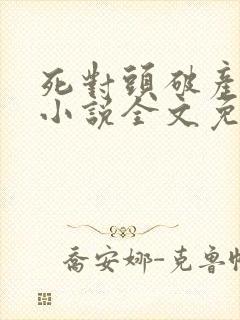 死對頭破產
小說全文免
喬安娜-克魯